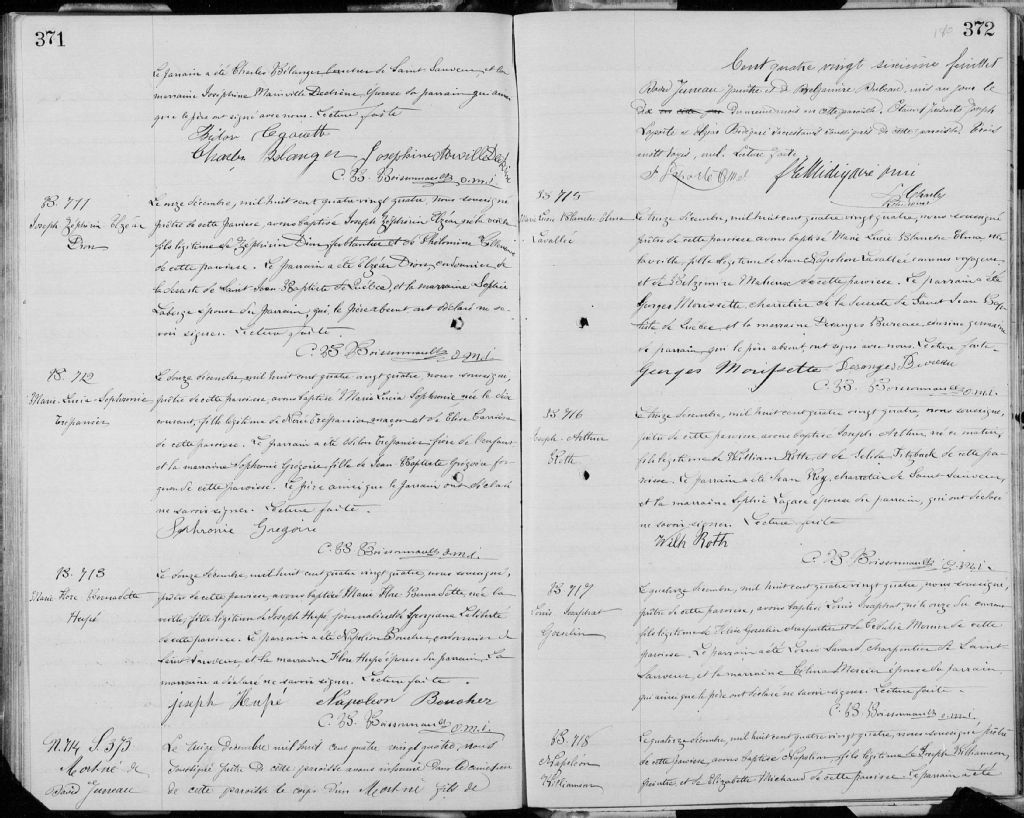 371
le parrain a été Charles Bélanger de Saint Sauveur et la
marraine Josephine Mainville Duchène, épouse du parrain qui ainsi
que le père ont signé avec nous. Lecture faite
Charles Belanger Josephine
C. B. Boissonnault o.m.i
B. 711
Joseph Zéphirin Elzéar
Dion
Le onze décembre, mil huit cent quatre vingt quatre, nous soussigné
prêtre de cette paroisse, avons baptisé Joseph Zéphirin Elzéar, né la veille
fils légitime de Zéphirin Dion ferblantier et de Philomène
de cette paroisse. Le parrain a été Elzéar Dion, cordonnier de
la desserte de Saint Jean Baptiste de Québec, et la marraine Sophie
Laberge épouse du parrain, qui, le père absent ont déclaré ne sa-
voir signer. Lecture faite
C. B. Boissonnault o.m.i
B. 712
Marie-Lucia-Sophronie
Trépanier
Le douze décembre, mil huit cent quatre vingt quatre, nous soussigné,
prêtre de cette paroisse, avons baptisé Maria Lucia Sophronie, née le dix
courant, fille légitime de Nérée Trépanier maçon et de Elise Carrière
de cette paroisse. Le parrain a été Odilon Trépanier frère de l'enfant
et la marraine Sophronie Grégoire, fille de Jean Baptiste Grégoire for-
geron de cette paroisse. Le père ainsi que le parrain ont déclaré
ne savoir signer. Lecture faite.
Sophronie Gregoire
C. B. Boissonnault o.m.i.
B. 713
Marie Flore Bernadette
Hupé
Le douze décembre, mil huit cent quatre vingt quatre, nous soussigné,
prêtre de cette paroisse, avons baptisé Marie Flore Bernadette, née la
veille, fille légitime de Joseph Hupé journalier et de Georgiana Laliberté
de cette paroisse. Le parrain a été Napoléon Boucher, cordonnier de
Saint Sauveur, et la marraine Flore Hupé épouse du parrain. La
marraine a déclaré ne savoir signer. Lecture faite.
joseph Hupé Napoleon Boucher
C. B. Boissonnault o.m.i
N. 714 S. 373
Mort né de
David Juneau
Le treize Décembre mil huit cent quatre vingt quatre, nous
soussigné prêtre de cette paroisse avons inhumé dans le cimetière
de cette paroisse le corps d'un Mort né fils de
372
Cent quatre vingt sixième feuillet
David Juneau peintre et de Belzémire Buteau, mort au jour le
du même mois en cette paroisse. Étaient présents Joseph
Laporte et témoins soussignés de cette paroisse. trois
mots rayés, nuls. Lecture faite,
B 715
Marie Lucie Blanche Elmina
Lavallée
Le onze décembre, mil huit cent quatre vingt quatre, nous soussigné
prêtre de cette paroisse avons baptisé Marie Lucie Blanche Elmina, née
la veille, fille légitime de Jean Napoléon Lavallée commis voyageur
et de Belzémire Matieux de cette paroisse. Le parrain a été
Georges Morissette, charretier de la desserte de Saint Jean Bap-
tiste de Québec et la marraine Desanges Bureau, cousine germaine
du parrain, qui le père absent, ont signé avec nous. Lecture faite.
Georges Morissette Desanges Bureau
C. B. Boissonnault o.m.i.
B. 716
Joseph-Arthur
Roth
Le douze décembre, mil huit cent quatre vingt quatre, nous soussigné,
prêtre de cette paroisse avons baptisé Joseph Arthur né ce matin,
fils légitime de William Roth et de Zélida Fitzback de cette pa-
roisse. Le parrain a été Jean Roy, charretier de Saint-Sauveur,
et la marraine Sophie Lagacé épouse du parrain, qui ont déclaré
ne savoir signer. Lecture faite
Wilh Roth
C. B. Boissonnault o.m.i.
B. 717
Louis Josaphat
Gosselin
Le quatorze décembre, mil huit cent quatre vingt quatre, nous soussigné,
prêtre de cette paroisse, avons baptisé Louis Josaphat, né le onze du courant
fils légitime de Gosselin charpentier et de Morin de cette
paroisse. Le parrain a été Louis Savard charpentier de Saint
Sauveur et la marraine Célina Mercier épouse du parrain
qui ainsi que le père ont déclaré ne savoir signer. Lecture faite.
C. B. Boissonnault o.m.i.
B. 718
Napoléon
Williamson
Le quatorze décembre, mil huit cent quatre vingt quatre, nous soussigné prêtre
de cette paroisse, avons baptisé Napoléon, fils légitime de Joseph Williamson,
peintre, et de Elizabeth Michaud de cette paroisse. Le parrain a été